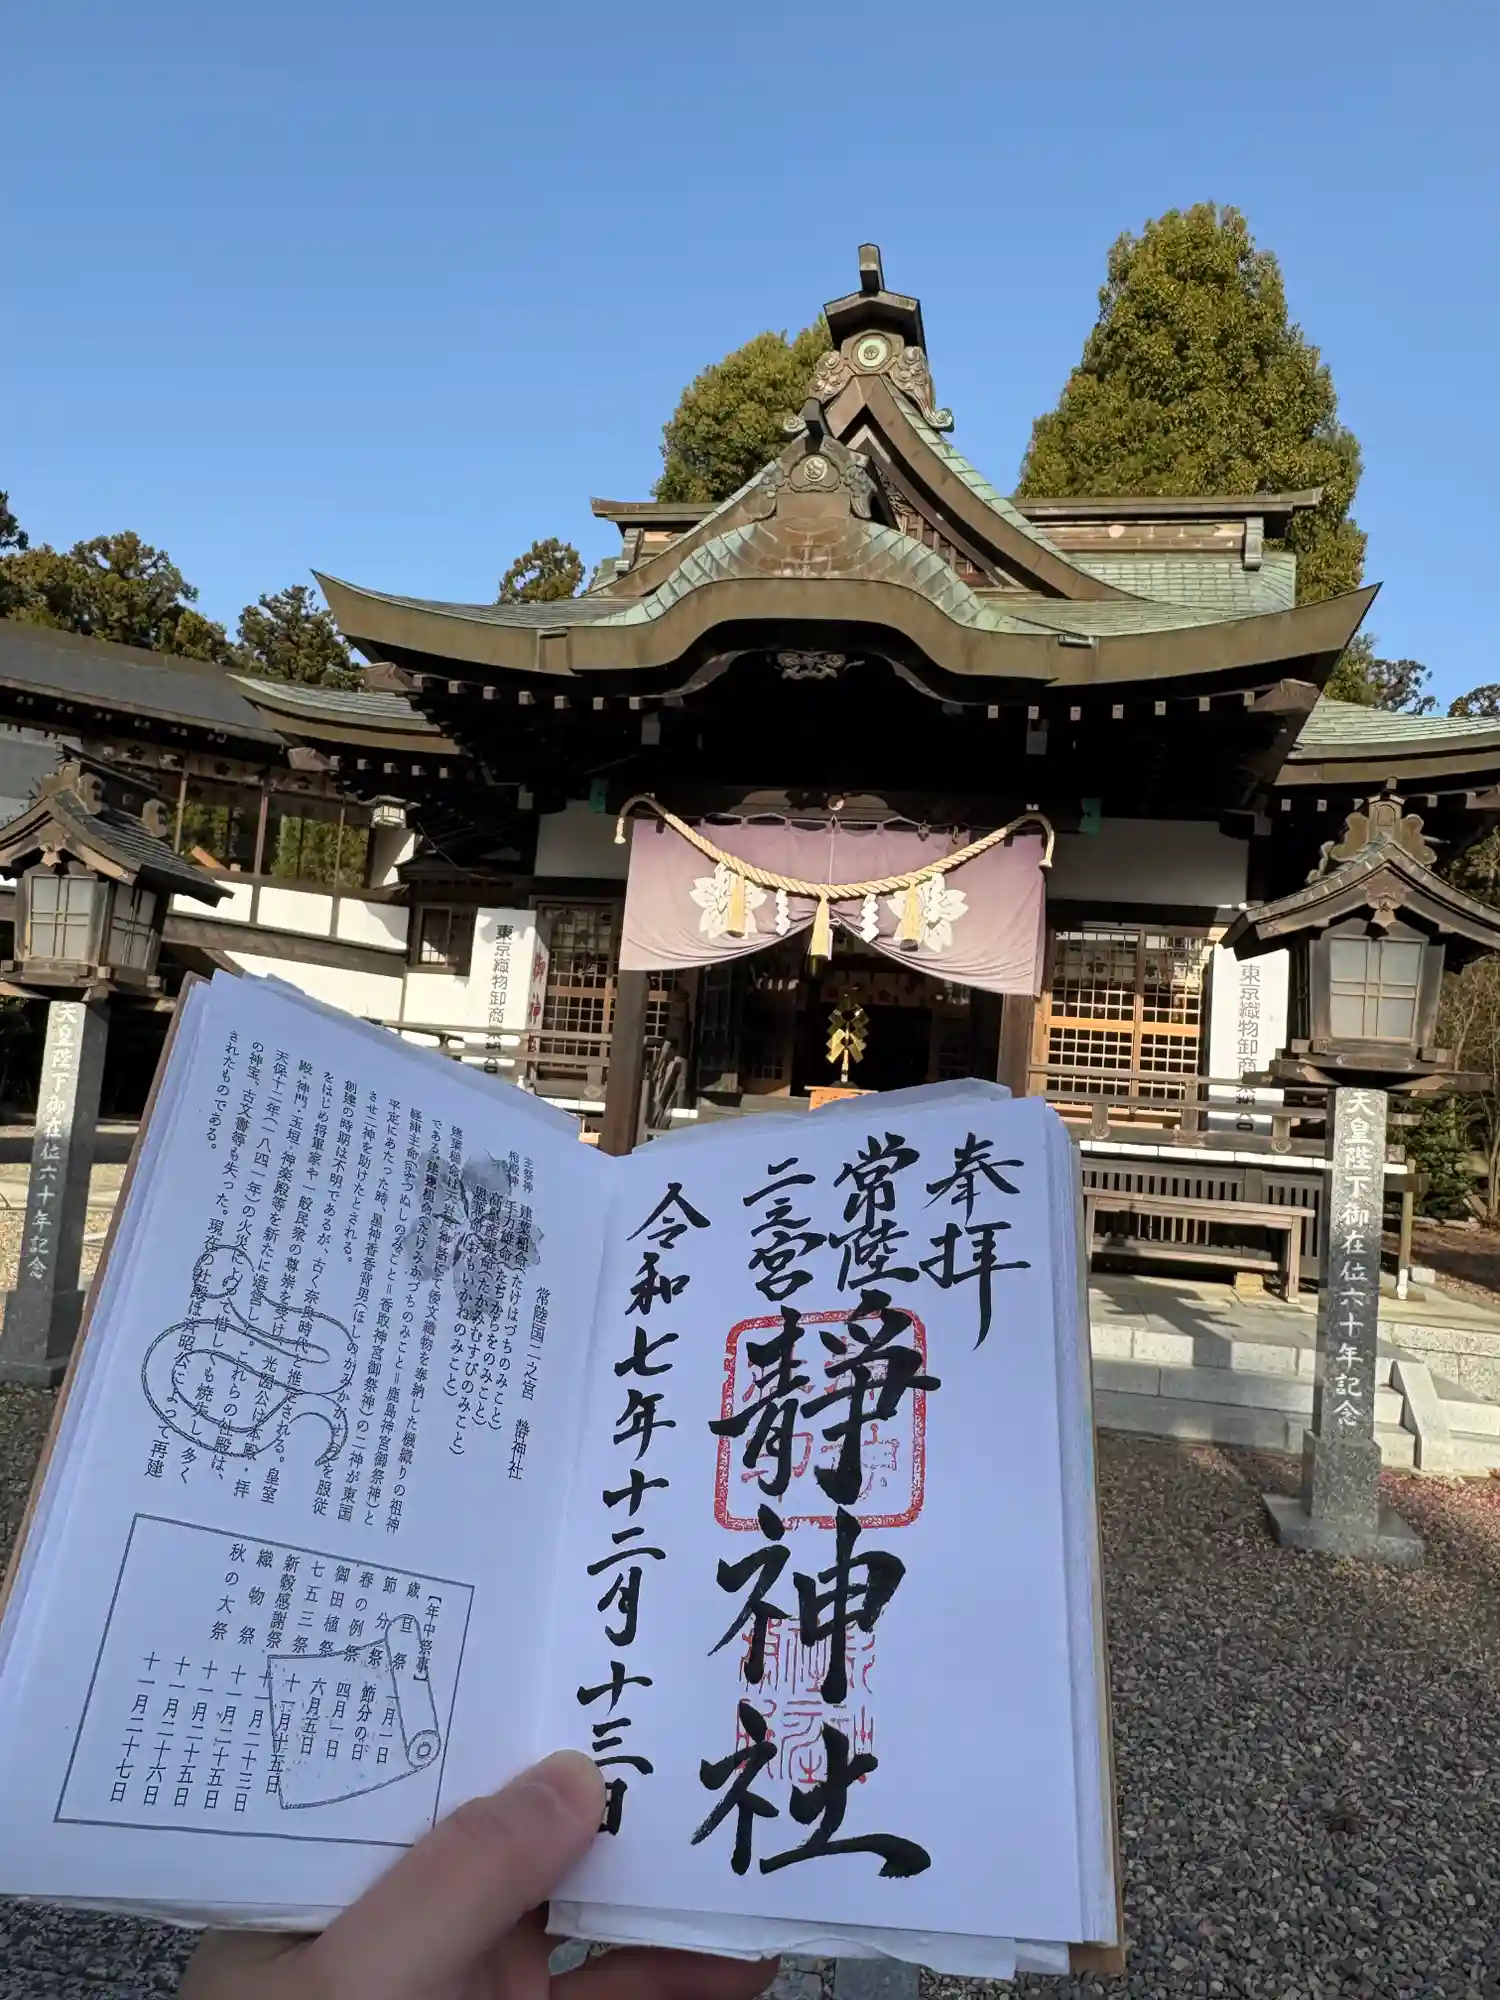 奉拝
常陸
二之宮
靜神社
令和七年十二月十三日
常陸国二之宮 靜神社
主祭神 建葉槌命(たけはづちのみこと)
相殿神 手力雄命(たぢからをのみこと)
高皇産霊命(たかみむすびのみこと)
思兼命(おもいかねのみこと)
建葉槌命は天岩戸神話にて倭文織物を奉納した機織りの祖神
である。建甕槌命(たけみかづちのみこと=鹿島神宮御祭神)と
経津主命(ふつぬしのみこと=香取神宮御祭神)の二神が東国
平定にあたった時、星神香香背男(ほしのかみかかせお)を服従
させ二神を助けたとされる。
創建の時期は不明であるが、古く奈良時代と推定される。皇室
をはじめ将軍家や一般民衆の尊崇を受け、光圀公は本殿・拝
殿・神門・玉垣・神楽殿等を新たに造営した。これらの社殿は、
天保十二年(一八四一年)の火災によって惜しくも焼失し、多く
の神宝、古文書等も失った。現在の社殿は斉昭公によって再建
されたものである。
【年中祭事】
歳旦祭 一月一日
節分祭 節分の日
春の例祭 四月一日
御田植祭 六月五日
七五三祭 十一月十五日
新穀感謝祭 十一月二十三日
織物祭 十一月二十五日
秋の大祭 十一月二十五日
十一月二十六日
十一月二十七日
天皇陛下御在位六十年記念
東京織物卸商業組合
御神
東京織物卸商業組合
天皇陛下御在位六十年記念